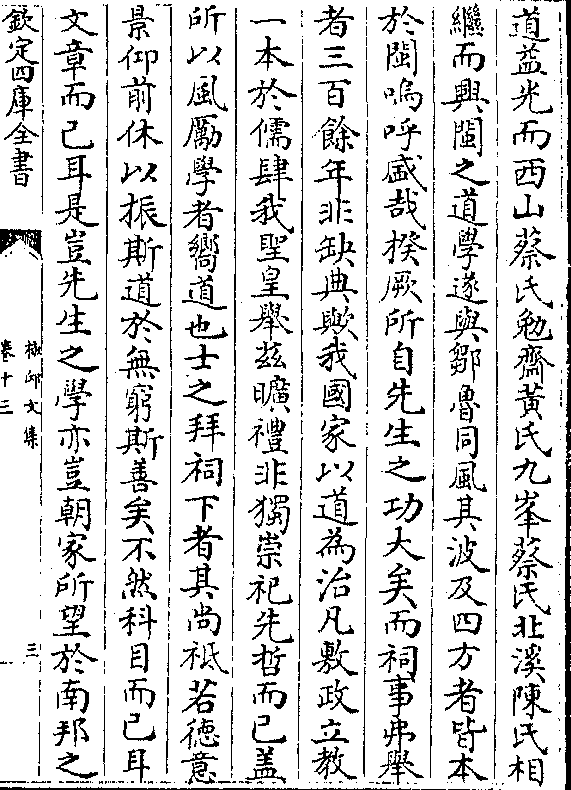 道益光而西山蔡氏勉齋黄氏九峯蔡氏北溪陳氏相
繼而興閩之道學遂與鄒魯同風其波及四方者皆本
於閩嗚呼盛哉揆厥所自先生之功大矣而祠事弗舉
者三百餘年非缺典歟我國家以道為治凡敷政立教
一本於儒肆我聖皇舉兹曠禮非獨崇祀先哲而已盖
所以風厲學者嚮道也士之拜祠下者其尚祗若德意
景仰前休以振斯道於無窮斯善矣不然科目而已耳
文章而已耳是豈先生之學亦豈朝家所望於南邦之
欽定四庫全書
文集
卷十三
三